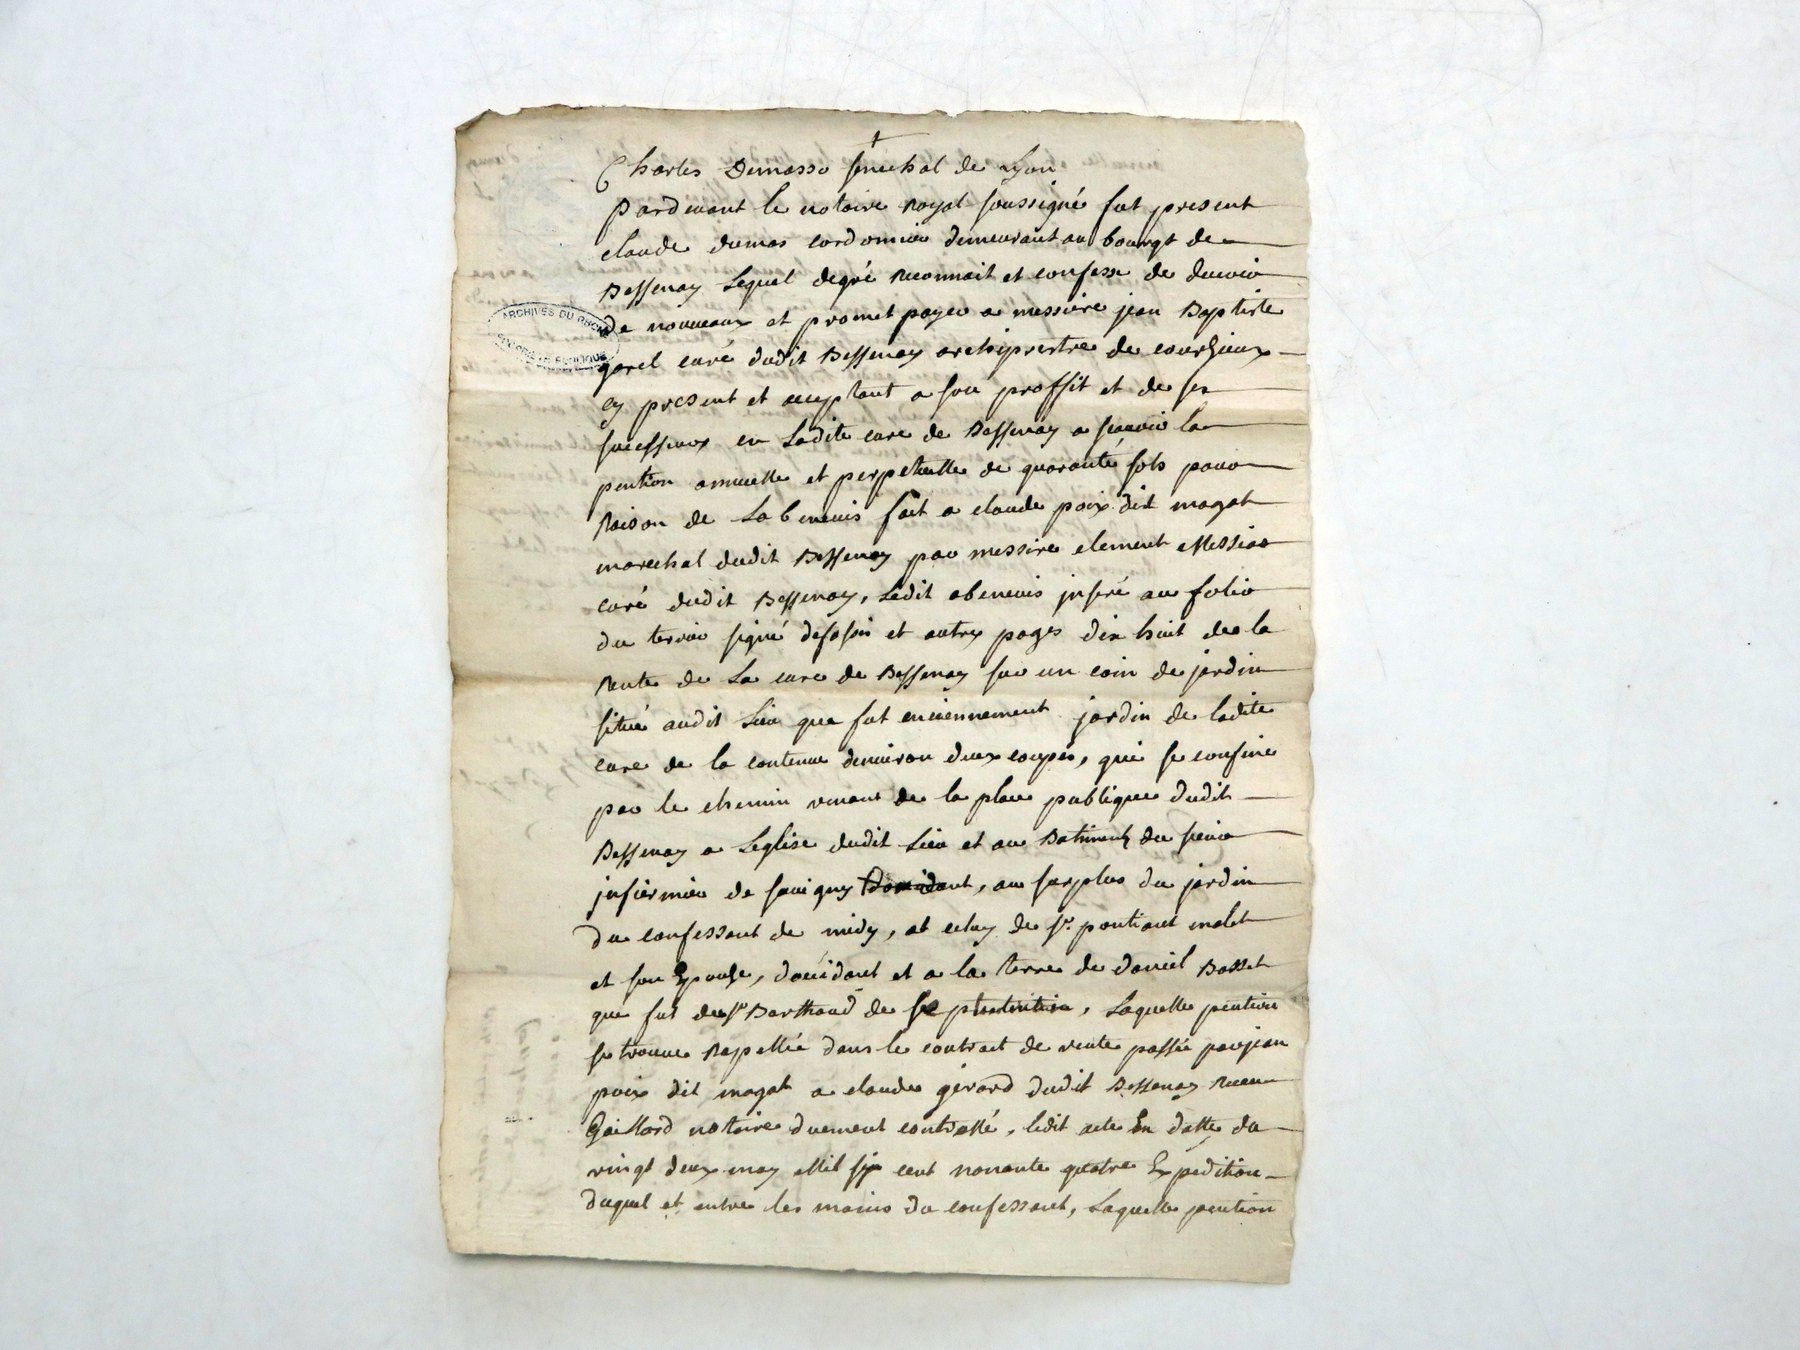 †
Charles Demasso senechal de Lyon
Pardevant le notaire Royal soussigné fut present
claude dumas cordonnier demeurant au bourgt de
Bessenay Lequel degré reconnait et confesse de devoir
de nouveaux et promet payer a messire jean Baptiste
gorel curé dudit Bessenay archiprestre de courzieux
cy present et acceptant a son proffit et de ses
successeurs en Ladite cure de Bessenay a sçavoir la
pention annuelle et perpetuelle de quarante sols pour
Raison de Labenevis fait a claude poix dit magat
marechal dudit Bessenay par messire clement Messier
curé dudit Bessenay, Ledit abenevis inseré au folio
du terrier signé et autres pages dix huit de la
Rente de La cure de Bessenay sur un coin de jardin
situé audit Lieu que fut enciennement jardin de ladite
cure de la contenue denviron deux coupes, qui se confine
par le chemin venant de la place publique dudit
Bessenay a Leglise dudit Lieu et au Batiment du sieur
infirmier de savigny, au surplus du jardin
du confessant de midy, et celuy de Sr. pontiant molet
et son Epouse, doccidant et a la terre de daniel Basset
que fut du Sr Barthaud de, Laquelle pention
se trouve Rapellée dans le contract de vente passée par jean
poix dit magat a claude girard dudit Bessenay Receu
Gaillard notaire duement controllé, ledit acte En datte du
vingt deux may Mil six cent nonante quatre Expedition
duquel et entre les mains du confessant, Laquelle pention
ARCHIVES DU RHONE